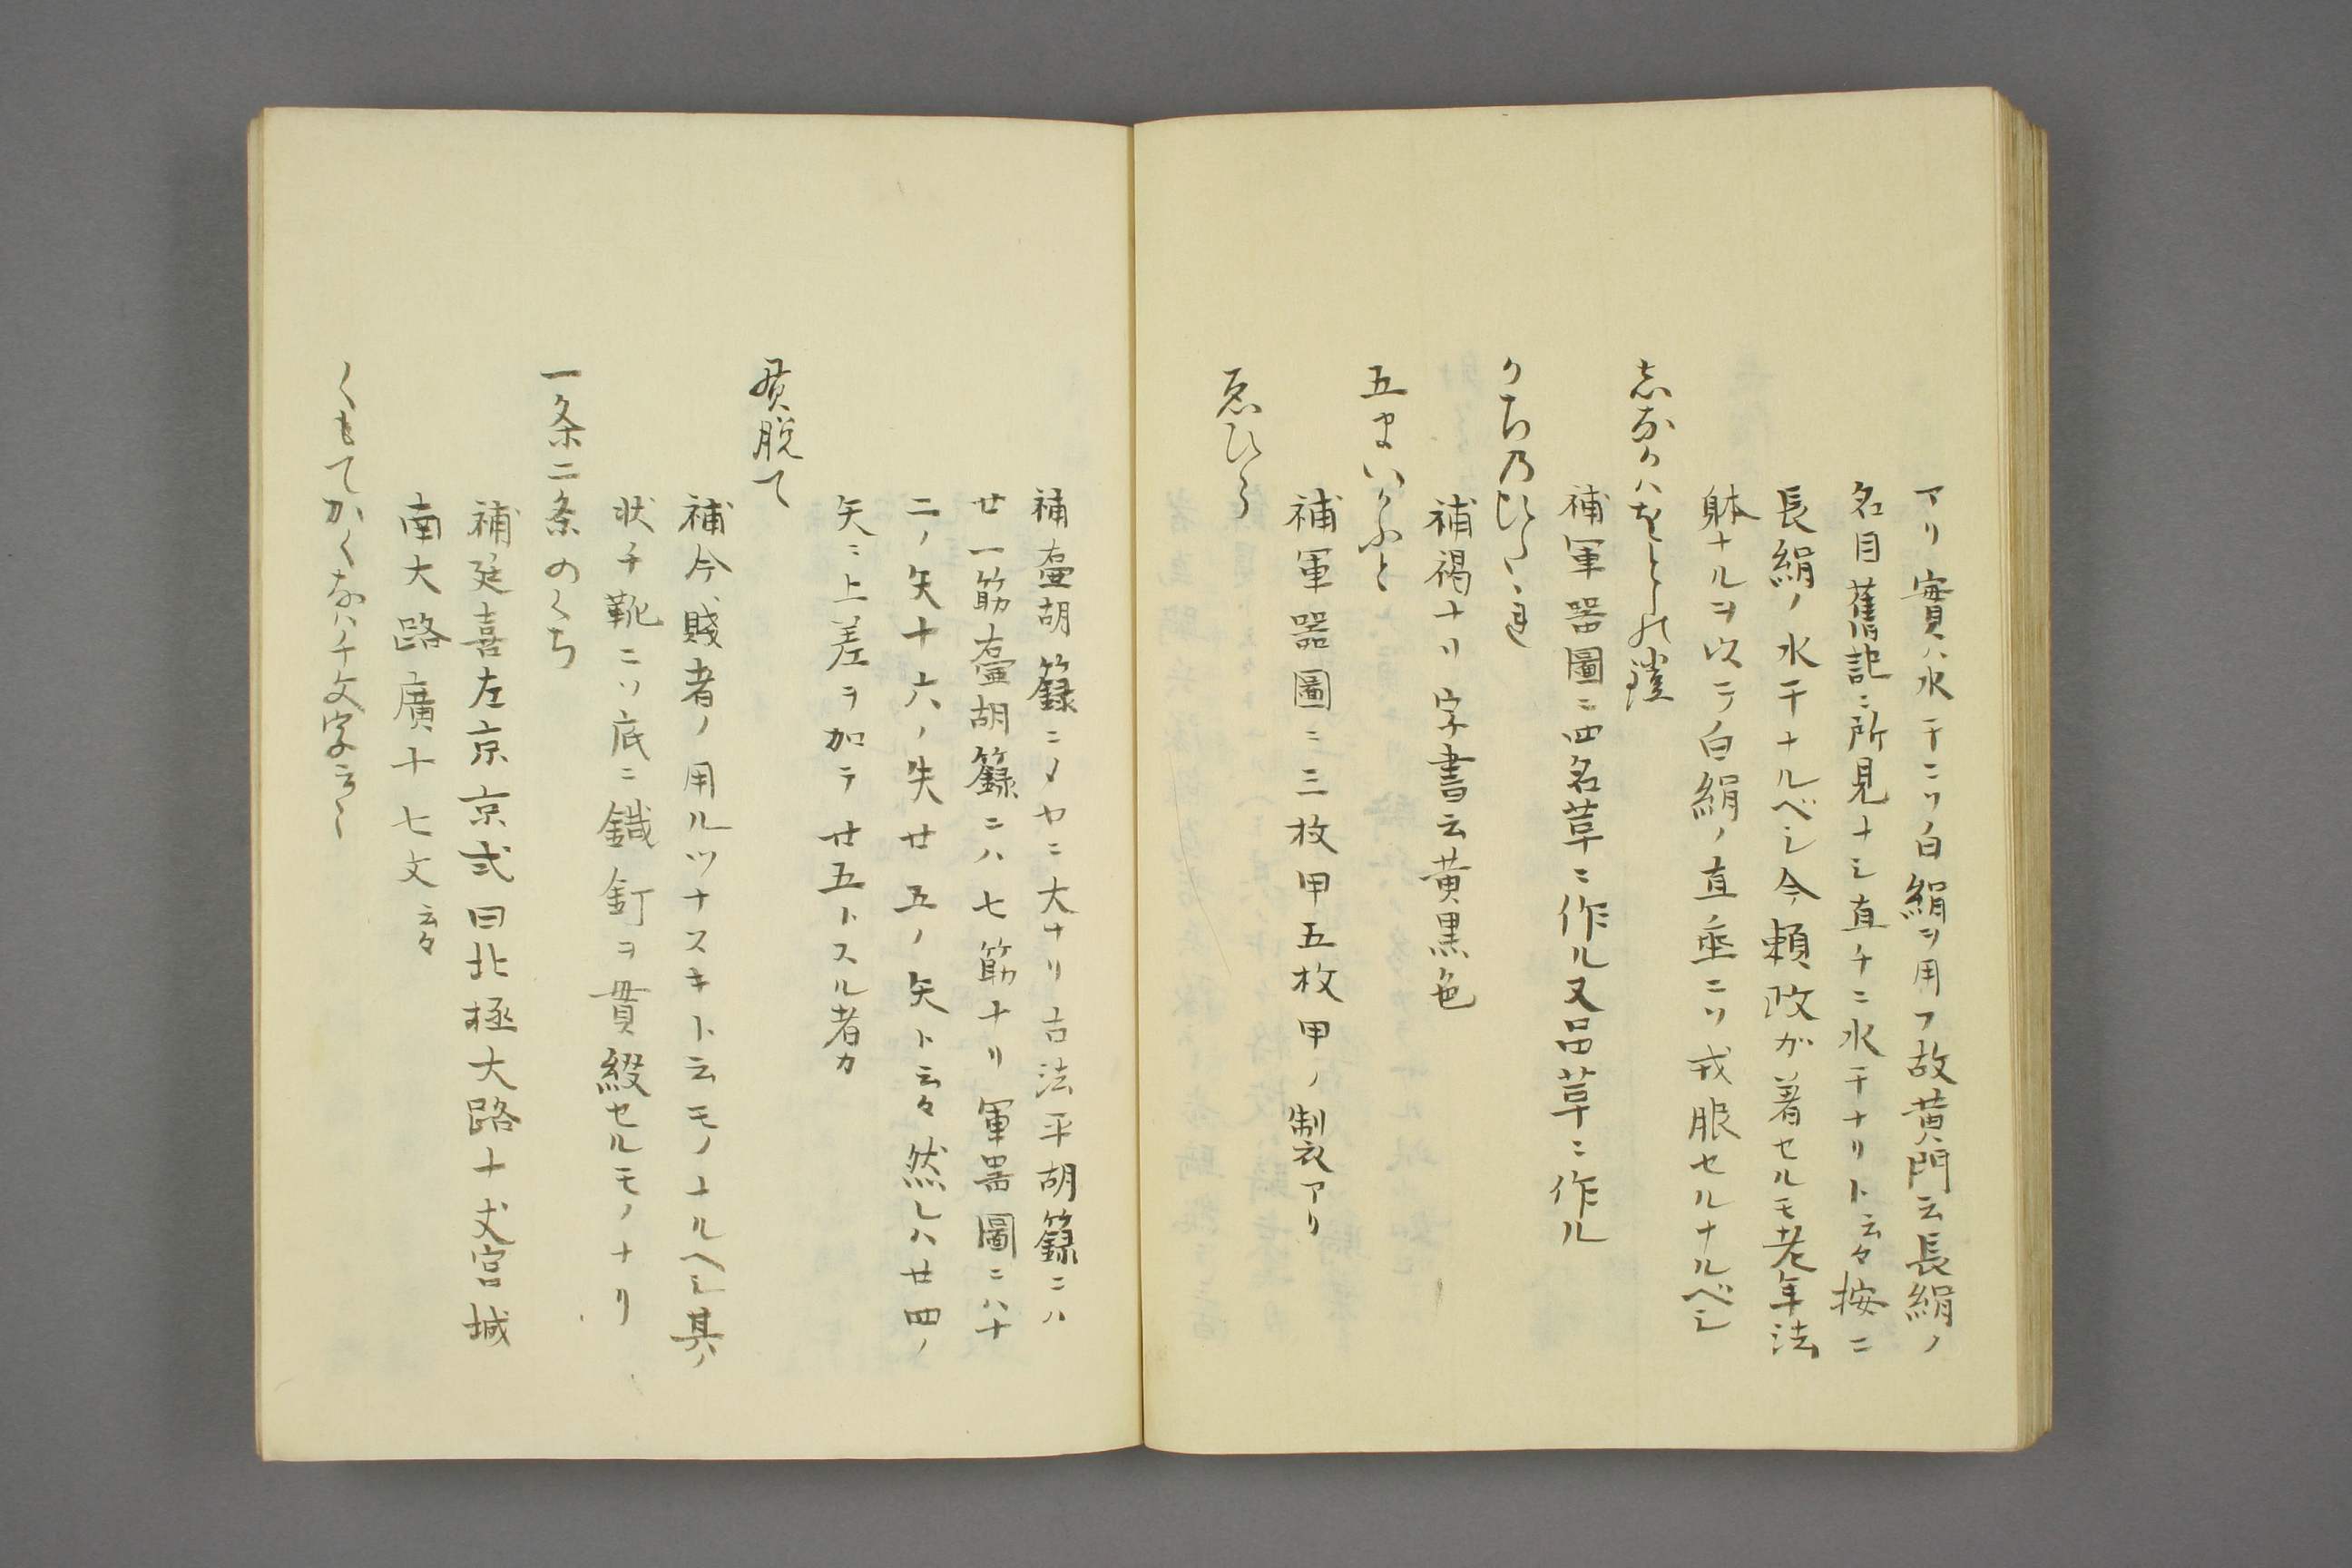 アリ實ハ水干ニソ白絹ヲ用フ故黄門云長絹ノ
名目舊記ニ所見ナシ直チニ水干ナリト云々按ニ
長絹ノ水干ナルベシ今頼政ガ著セルモ老年法
躰ナルヲ以テ白絹ノ直垂ニソ戎服セルナルベシ
志ながハをとしの鎧
補軍器圖ニ四名草ニ作ル又品草ニ作ル
かちのひたゝれ
補褐ナリ字書云黄黒色
五まいかふと
補軍器圖ニ三枚甲五枚甲ノ製アリ
ゑひら
補壷胡籙ニメヤニ大ナリ古法平胡籙ニハ
廿一筋壷胡籙ニハ七筋ナリ軍器圖ニハ十
二ノ矢十六ノ矢廿五ノ矢ト云々然レハ廿四ノ
矢ニ上差ヲ加テ廿五トスル者カ
貫脱て
補今賤者ノ用ルツナスキト云モノナルヘシ其ノ
状チ靴ニソ底ニ鐵釘ヲ貫綴セルモノナリ
一条二条のくち
補延喜左京京式曰北極大路十丈宮城
南大路廣十七丈云々
くもてかくなハ十文字云々